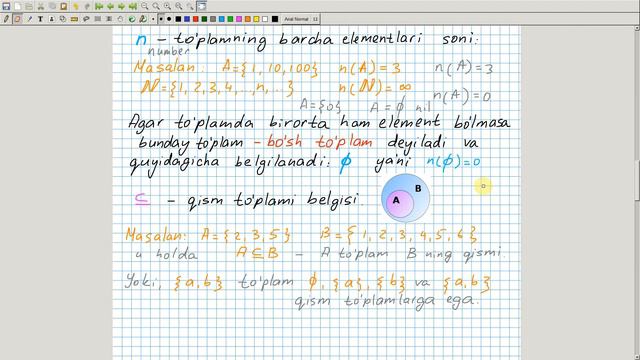 Arial Normal 12
n – to'plamning barcha elementlari soni:
number
Masalan: A={1, 10, 100} n(A)=3 n(A)=3
ℕ={1, 2, 3, 4, ..., n, ...} n(ℕ)=∞ n(A)=0
A={0} A=∅ nil
Agar to'plamda birorta ham element bo'lmasa
bunday to'plam – bo'sh to'plam deyiladi va
quyidagicha belgilanadi: ∅ ya'ni n(∅)=0
⊆ – qism to'plami belgisi
A B
Masalan: A={2, 3, 5} B={1, 2, 3, 4, 5, 6}
u holda A⊆B – A to'plam B ning qismi.
Yoki, {a,b} to'plam ∅, {a}, {b} va {a,b}
qism to'plamlarga ega.